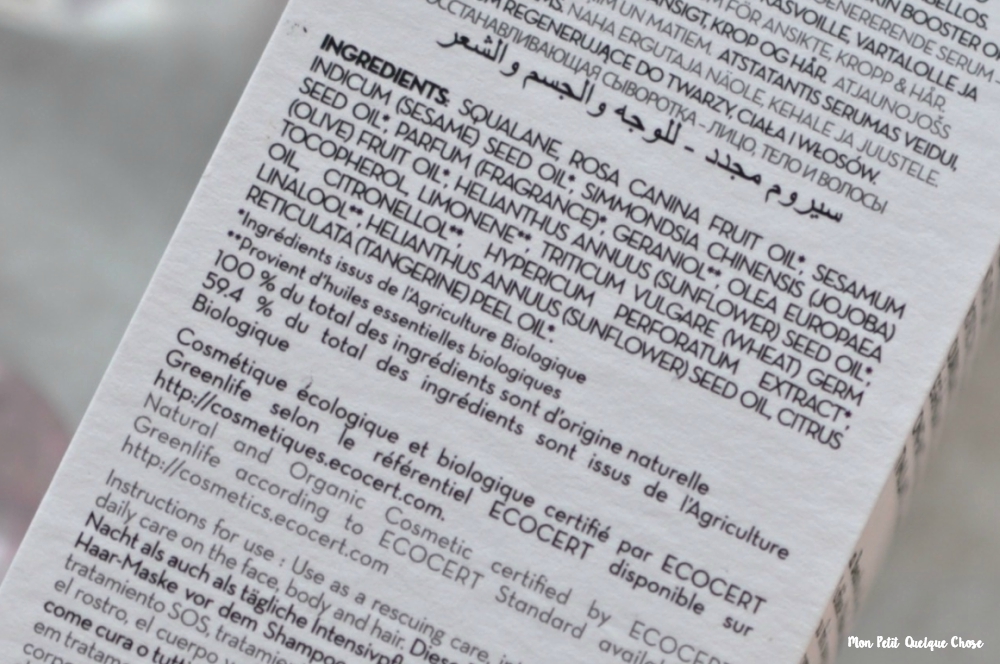 SKIN BOOSTER
REGENERERENDE SERUM
KASVOILLE, VARTALOLLE JA
FÖR ANSIKTE, KROPP & HÅR.
ANSIGT, KROP OG HÅR. ATJAUNOJOŠS
UN MATIEM. ATSTATANTIS SERUMAS VEIDUI,
NAHA ERGUTAJA NÄOLE, KEHALE JA JUUSTELE.
REGENERUJĄCE DO TWARZY, CIAŁA I WŁOSÓW.
ВОССТАНАВЛИВАЮЩАЯ СЫВОРОТКА - ЛИЦО, ТЕЛО И ВОЛОСЫ
سيروم مجدد - للوجه والجسم والشعر
INGREDIENTS: SQUALANE, ROSA CANINA FRUIT OIL*, SESAMUM
INDICUM (SESAME) SEED OIL*, SIMMONDSIA CHINENSIS (JOJOBA)
SEED OIL*, PARFUM (FRAGRANCE)*, GERANIOL**, OLEA EUROPAEA
(OLIVE) FRUIT OIL*, HELIANTHUS ANNUUS (SUNFLOWER) SEED OIL*,
TOCOPHEROL, LIMONENE**, TRITICUM VULGARE (WHEAT) GERM
OIL, CITRONELLOL**, HYPERICUM PERFORATUM EXTRACT*,
LINALOOL**, HELIANTHUS ANNUUS (SUNFLOWER) SEED OIL, CITRUS
RETICULATA (TANGERINE) PEEL OIL*.
*Ingrédients issus de l'Agriculture Biologique
**Provient d'huiles essentielles biologiques
100 % du total des ingrédients sont d'origine naturelle
59,4 % du total des ingrédients sont issus de l'Agriculture
Biologique
Cosmétique écologique et biologique certifié par ECOCERT
Greenlife selon le référentiel ECOCERT disponible sur
http://cosmetiques.ecocert.com.
Natural and Organic Cosmetic certified by ECOCERT
Greenlife according to ECOCERT Standard
http://cosmetics.ecocert.com
Instructions for use : Use as a rescuing care,
daily care on the face, body and hair. Diese
Nacht als auch als tägliche
Haar-Maske vor dem
tratamiento SOS,
el rostro, el cuerpo
come cura o
em
Mon Petit Quelque Chose